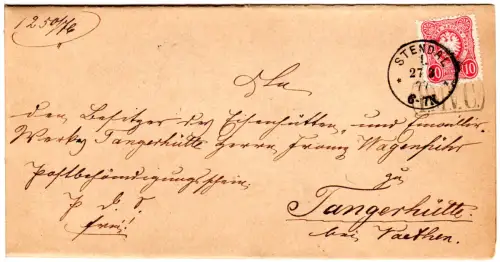 1250/76
STENDAL
27
6-7N.
10 10
An
den Besitzer des Eisenhütten- und Emaillir-
Werkes Tangerhütte Herrn Franz Wagenführ
zu
Postbehändigungsschein.
Tangerhütte
frei!
bei Vaethen.